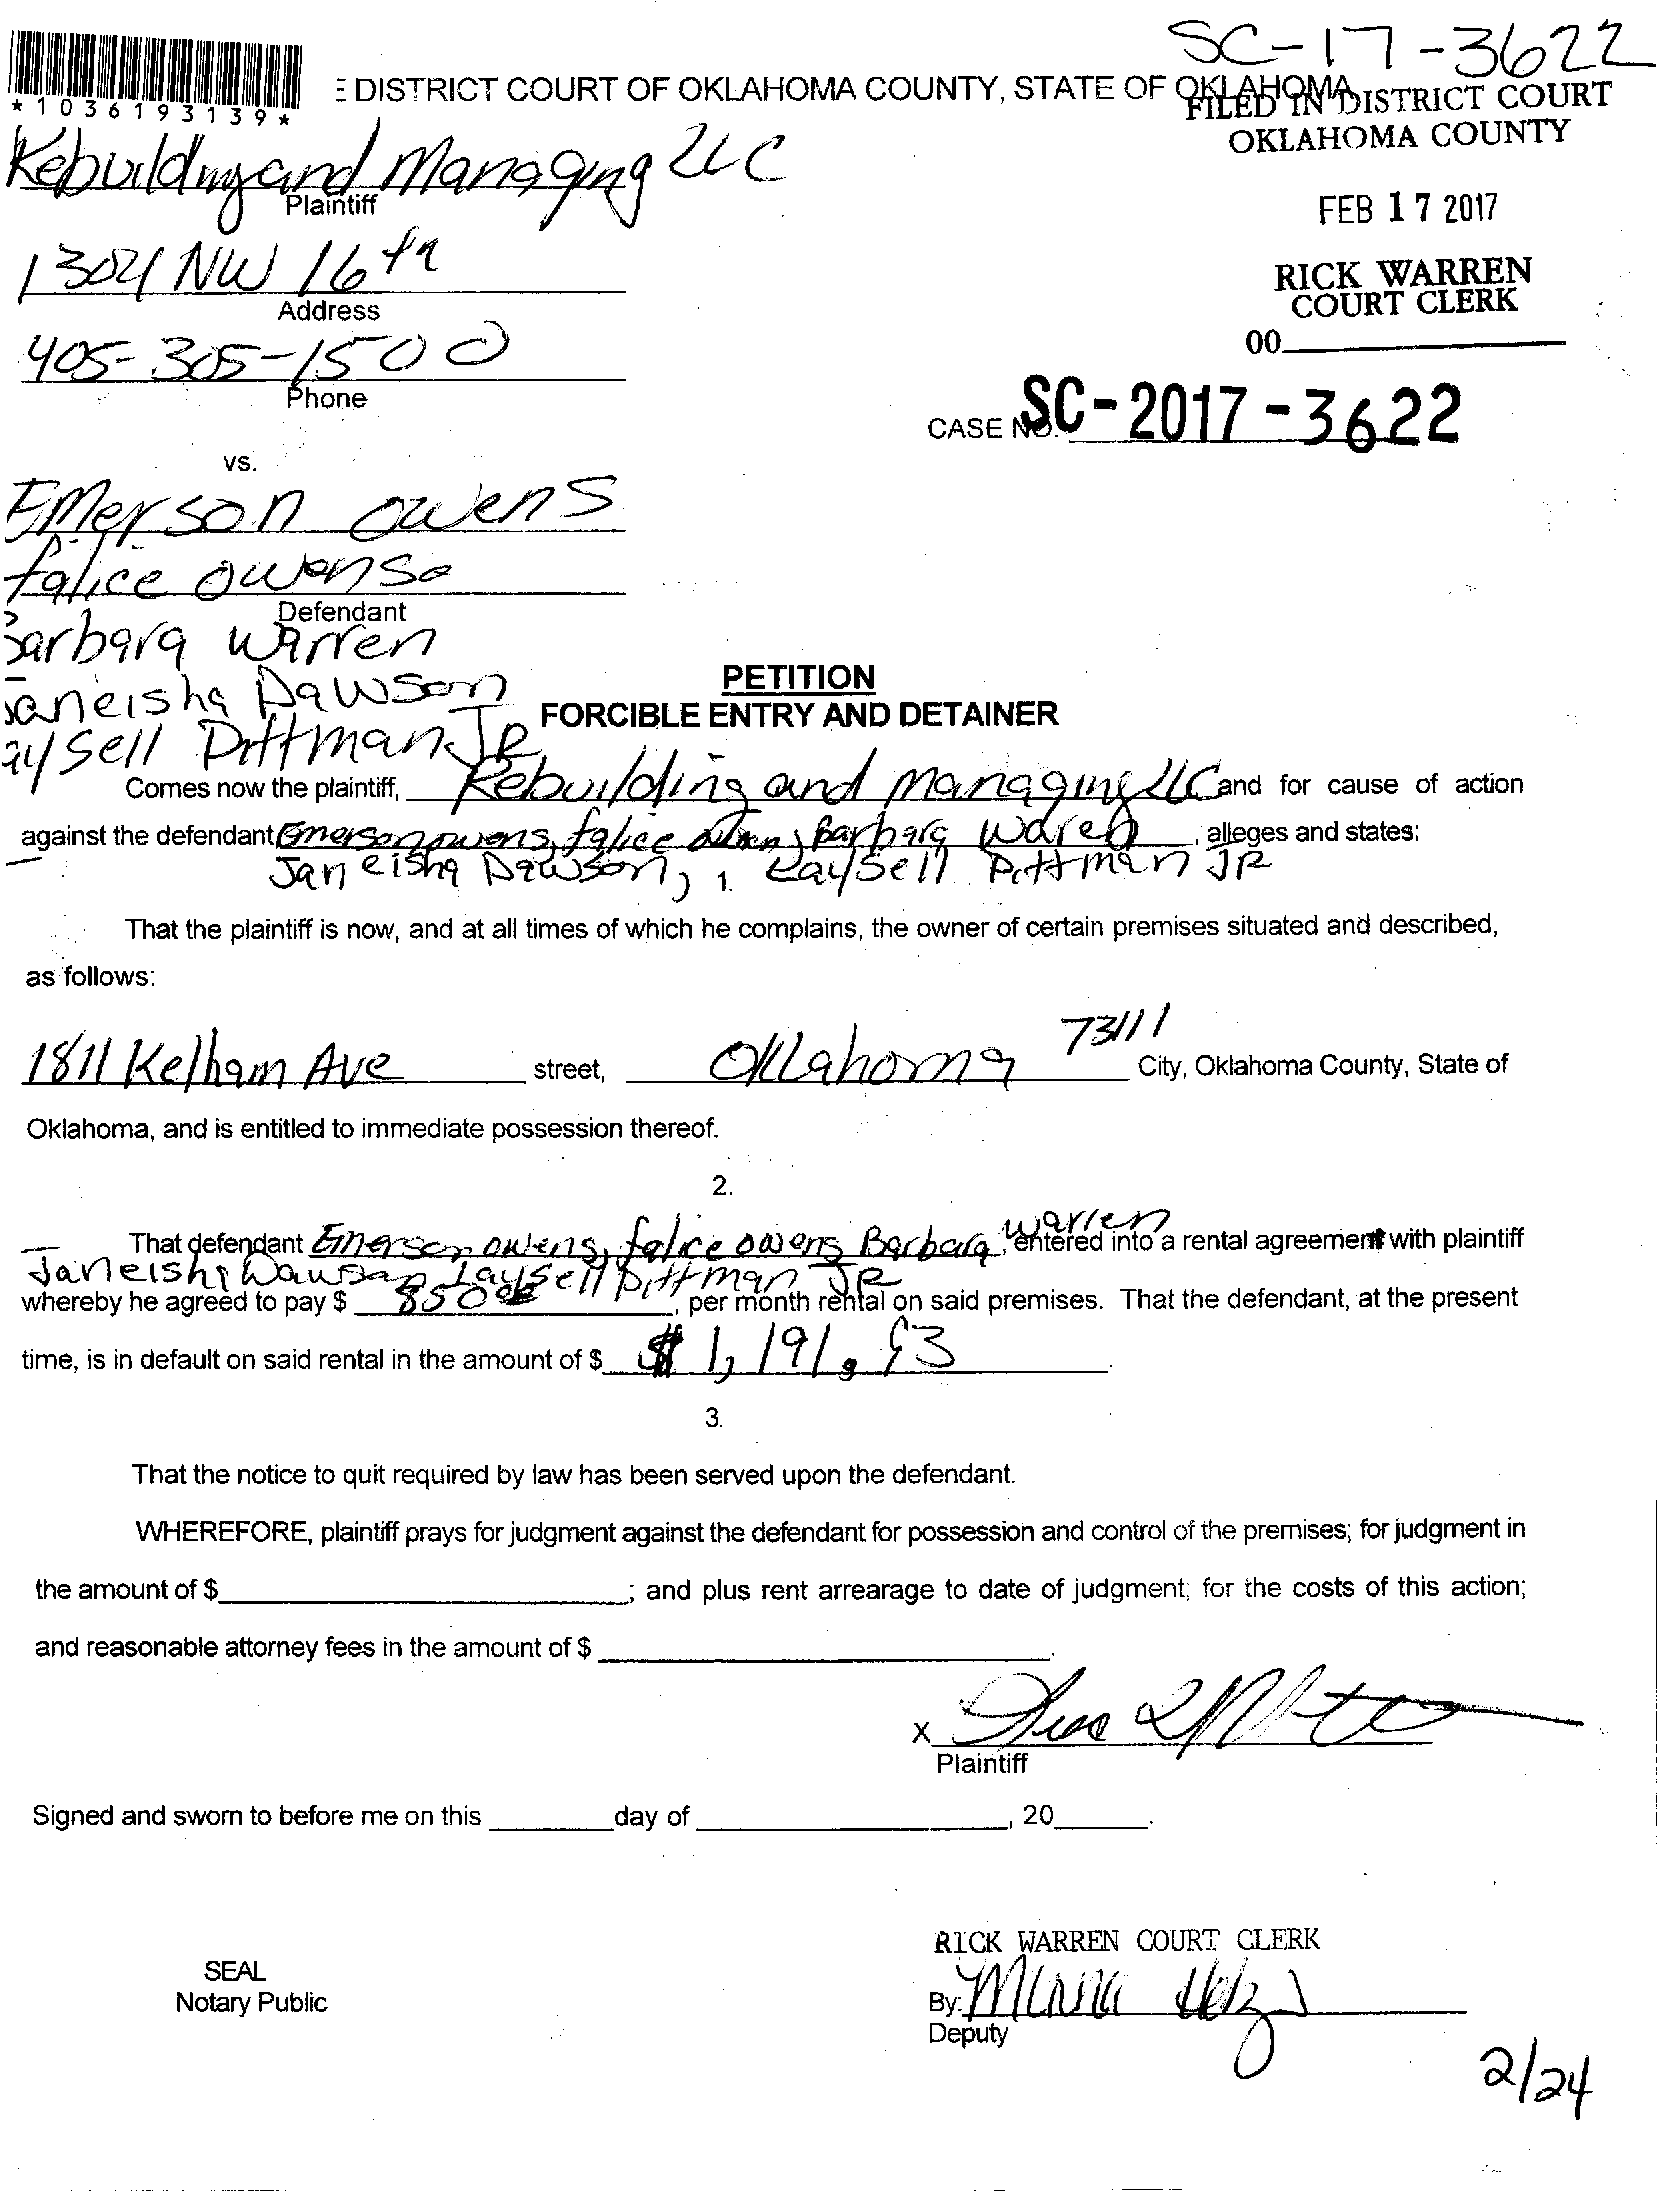 SC-17-3622
DISTRICT COURT OF OKLAHOMA COUNTY, STATE OF OKLAHOMA
FILED IN DISTRICT COURT
OKLAHOMA COUNTY
*1036193139*
Rebuilding and Managing LLC
Plaintiff
FEB 17 2017
1304 NW 16th
Address
RICK WARREN
COURT CLERK
00
405-305-1500
Phone
CASE NO. SC-2017-3622
vs.
Emerson owens
falice owens
Defendant
Barbara Warren
Janeisha Dawson
Pittman JR
PETITION
FORCIBLE ENTRY AND DETAINER
Comes now the plaintiff, Rebuilding and Managing LLC and for cause of action
against the defendant Emerson owens, falice Barbara , alleges and states:
Janeisha Dawson, Pittman JR
That the plaintiff is now, and at all times of which he complains, the owner of certain premises situated and described,
as follows:
1811 Kelham Ave street, Oklahoma 73111 City, Oklahoma County, State of
Oklahoma, and is entitled to immediate possession thereof.
2.
That defendant Emerson owens, falice owens Barbara warren entered into a rental agreement with plaintiff
Pittman JR
whereby he agreed to pay $ 850 , per month rental on said premises. That the defendant, at the present
time, is in default on said rental in the amount of $ $ 1,191.
3.
That the notice to quit required by law has been served upon the defendant.
WHEREFORE, plaintiff prays for judgment against the defendant for possession and control of the premises; for judgment in
the amount of $ ; and plus rent arrearage to date of judgment; for the costs of this action;
and reasonable attorney fees in the amount of $ .
X
Plaintiff
Signed and sworn to before me on this day of , 20 .
RICK WARREN COURT CLERK
SEAL
Notary Public
By:
Deputy
2/24